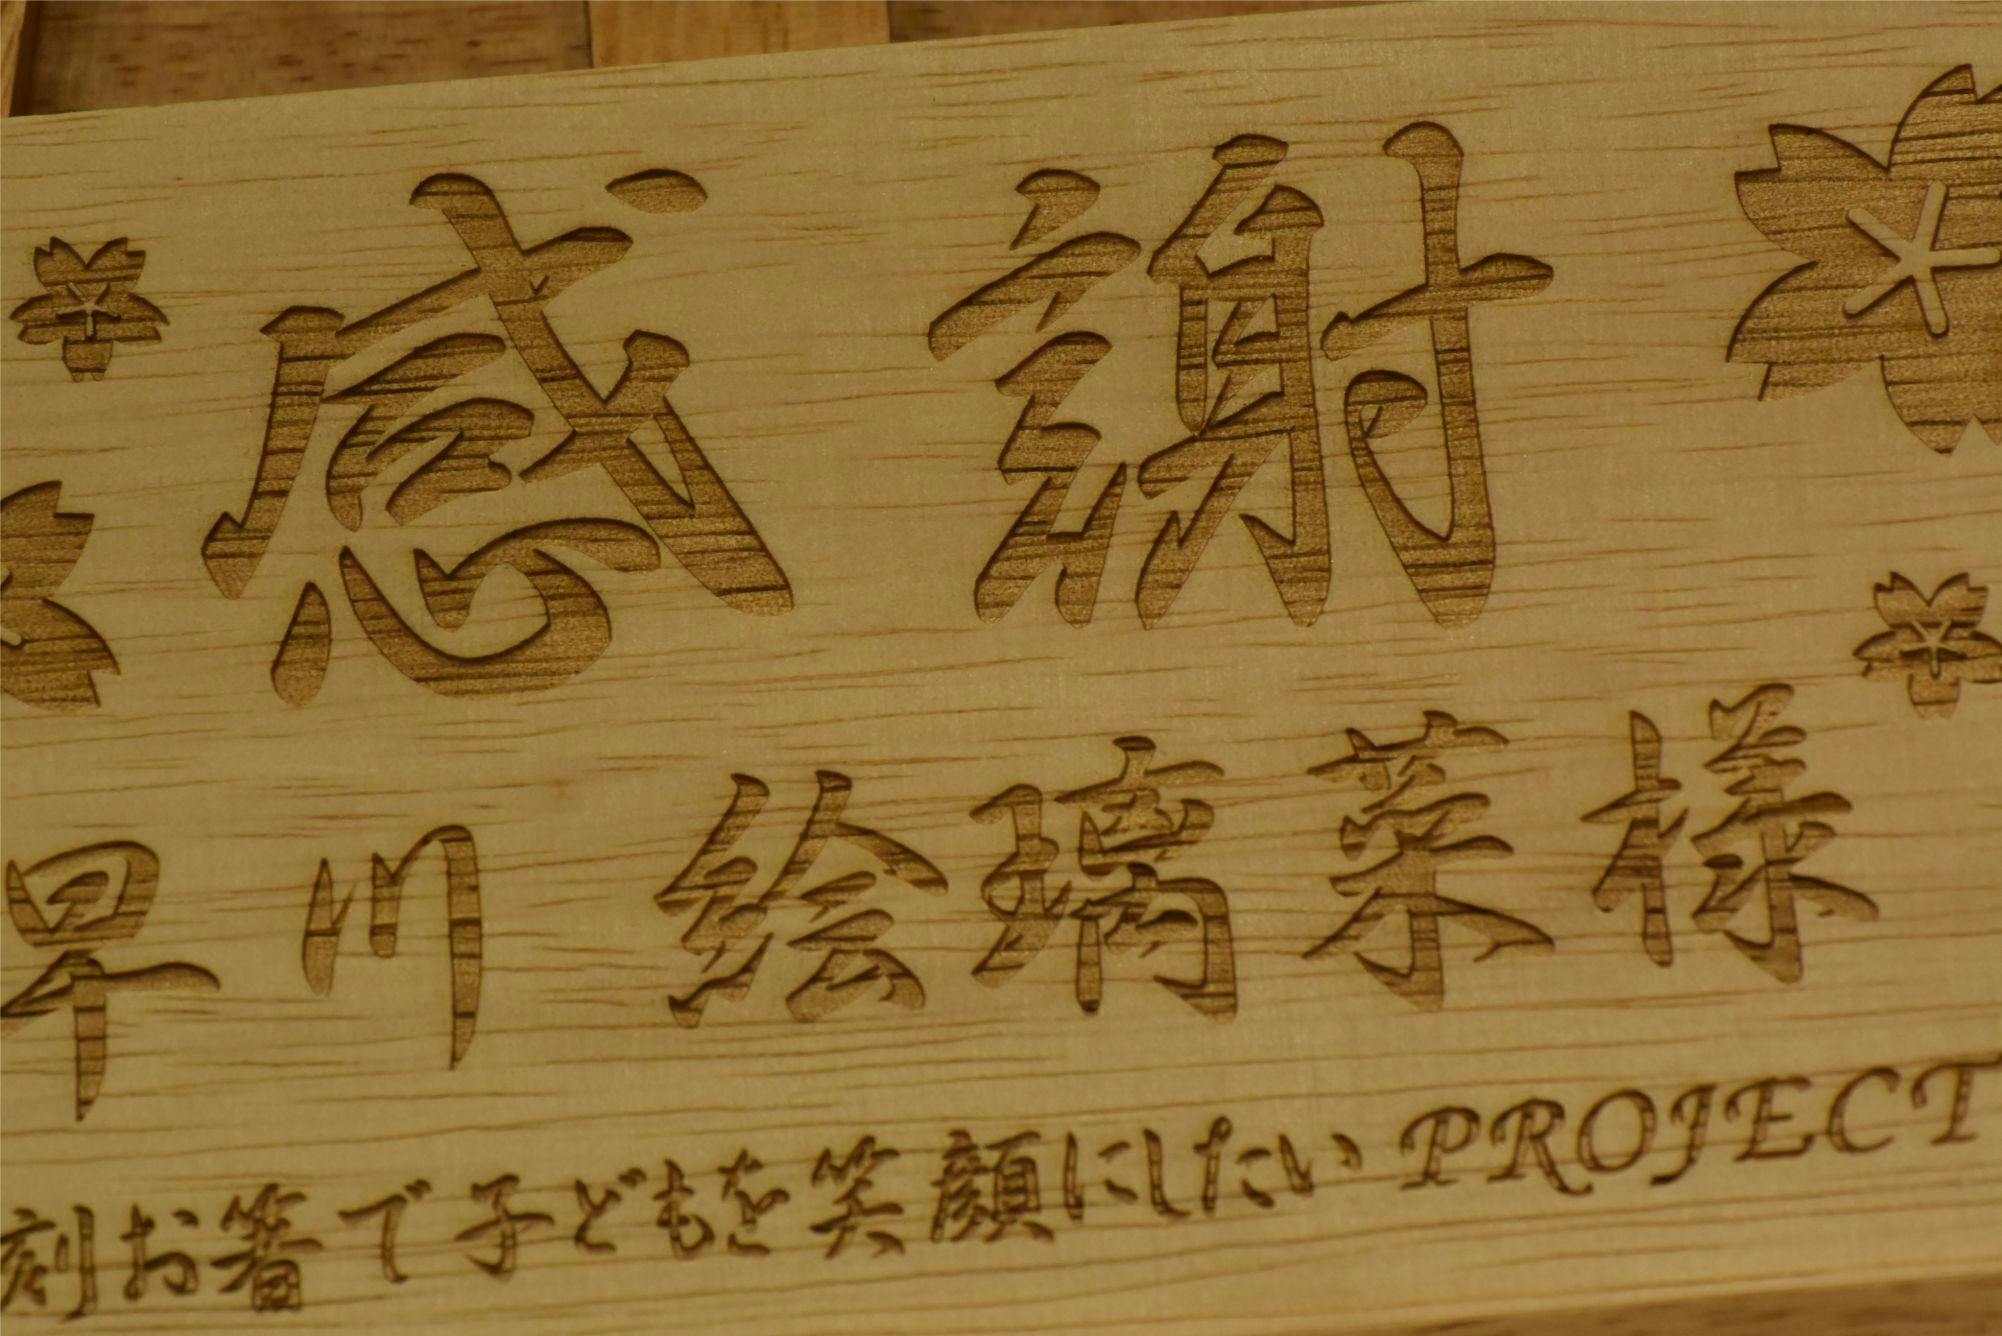 感謝
早川 絵璃菜様
刻お箸で子どもを笑顔にしたいPROJECT